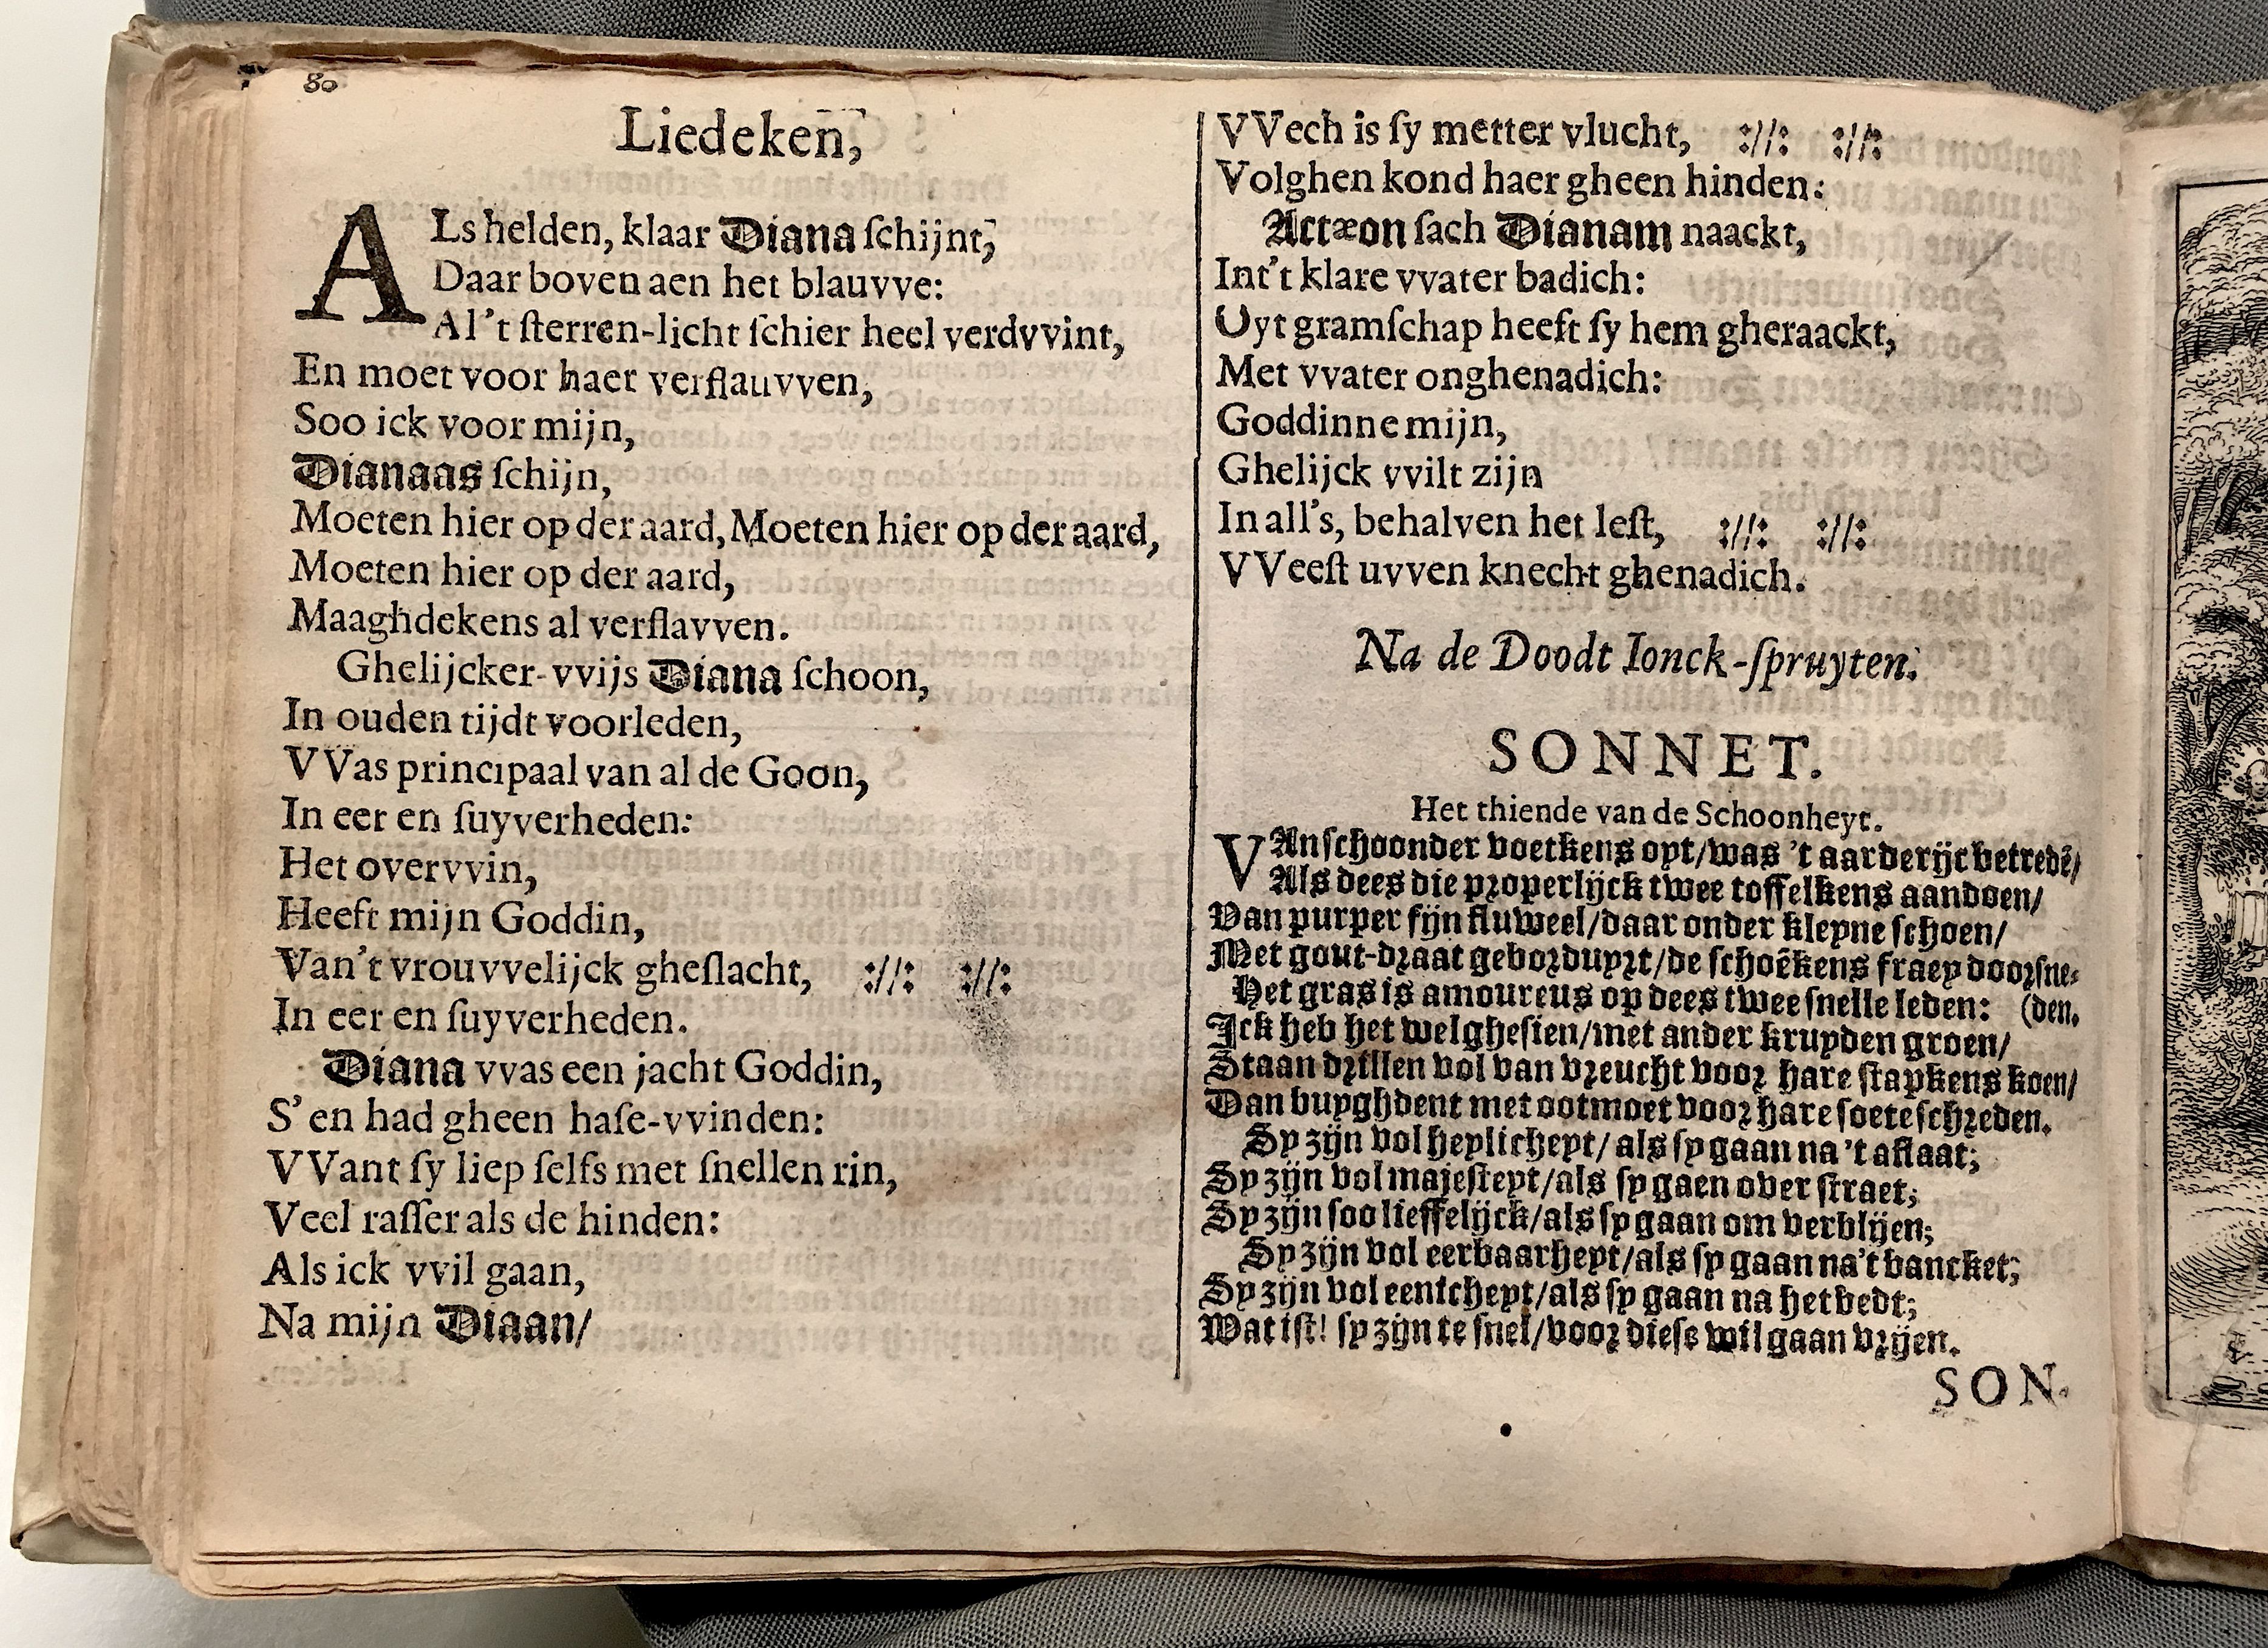 80
Liedeken,
ALs helden, klaar Diana ſchijnt,
Daar boven aen het blauvve:
Al't ſterren-licht ſchier heel verdvvint,
En moet voor haer verflauvven,
Soo ick voor mijn,
Dianaas ſchijn,
Moeten hier op der aard, Moeten hier op der aard,
Moeten hier op der aard,
Maaghdekens al verflavven.
Ghelijcker-vvijs Diana ſchoon,
In ouden tijdt voorleden,
VVas principaal van al de Goon,
In eer en ſuyverheden:
Het overvvin,
Heeft mijn Goddin,
Van't vrouvvelijck gheſlacht, :/​/: :/​/:
In eer en ſuyverheden.
Diana vvas een jacht Goddin,
S'en had gheen haſe-vvinden:
VVant ſy liep ſelfs met ſnellen rin,
Veel raſſer als de hinden:
Als ick vvil gaan,
Na mijn Diaan/
VVech is ſy metter vlucht, :/​/: :/​/:
Volghen kond haer gheen hinden:
Actæon ſach Dianam naackt,
Int't klare vvater badich:
Uyt gramſchap heeft ſy hem gheraackt,
Met vvater onghenadich:
Goddinne mijn,
Ghelijck vvilt zijn
In all's, behalven het leſt, :/​/: :/​/:
VVeeſt uvven knecht ghenadich.
Na de Doodt Ionck-ſpruyten.
SONNET.
Het thiende van de Schoonheyt.
VAn ſchoonder voetkens oyt/was 't aarderijc betredē/
Als dees die properlijck twee toffelkens aandoen/
Van purper fijn fluweel/daar onder kleyne ſchoen/
Met gout-draat geborduyrt/de ſchoēkens fraey doorſne-
Het gras is amoureus op dees twee ſnelle leden: (den.
Ick heb het wel gheſien/met ander kruyden groen/
Staan drillen vol van vreucht voor hare ſtapkens koen/
Dan buyghdent met ootmoet voor hare ſoete ſchreden.
Sy zijn vol heylicheyt/ als ſy gaan na 't aflaat;
Sy zijn vol majeſteyt/als ſy gaen over ſtraet;
Sy zijn ſoo lieffelijck/als ſy gaan om verblijen;
Sy zijn vol eerbaarheyt/als ſy gaan na't bancket;
Sy zijn vol eenicheyt/als ſy gaan na het bedt;
Wat iſt! ſy zijn te ſnel/voor dieſe wil gaan vrijen.
SON-